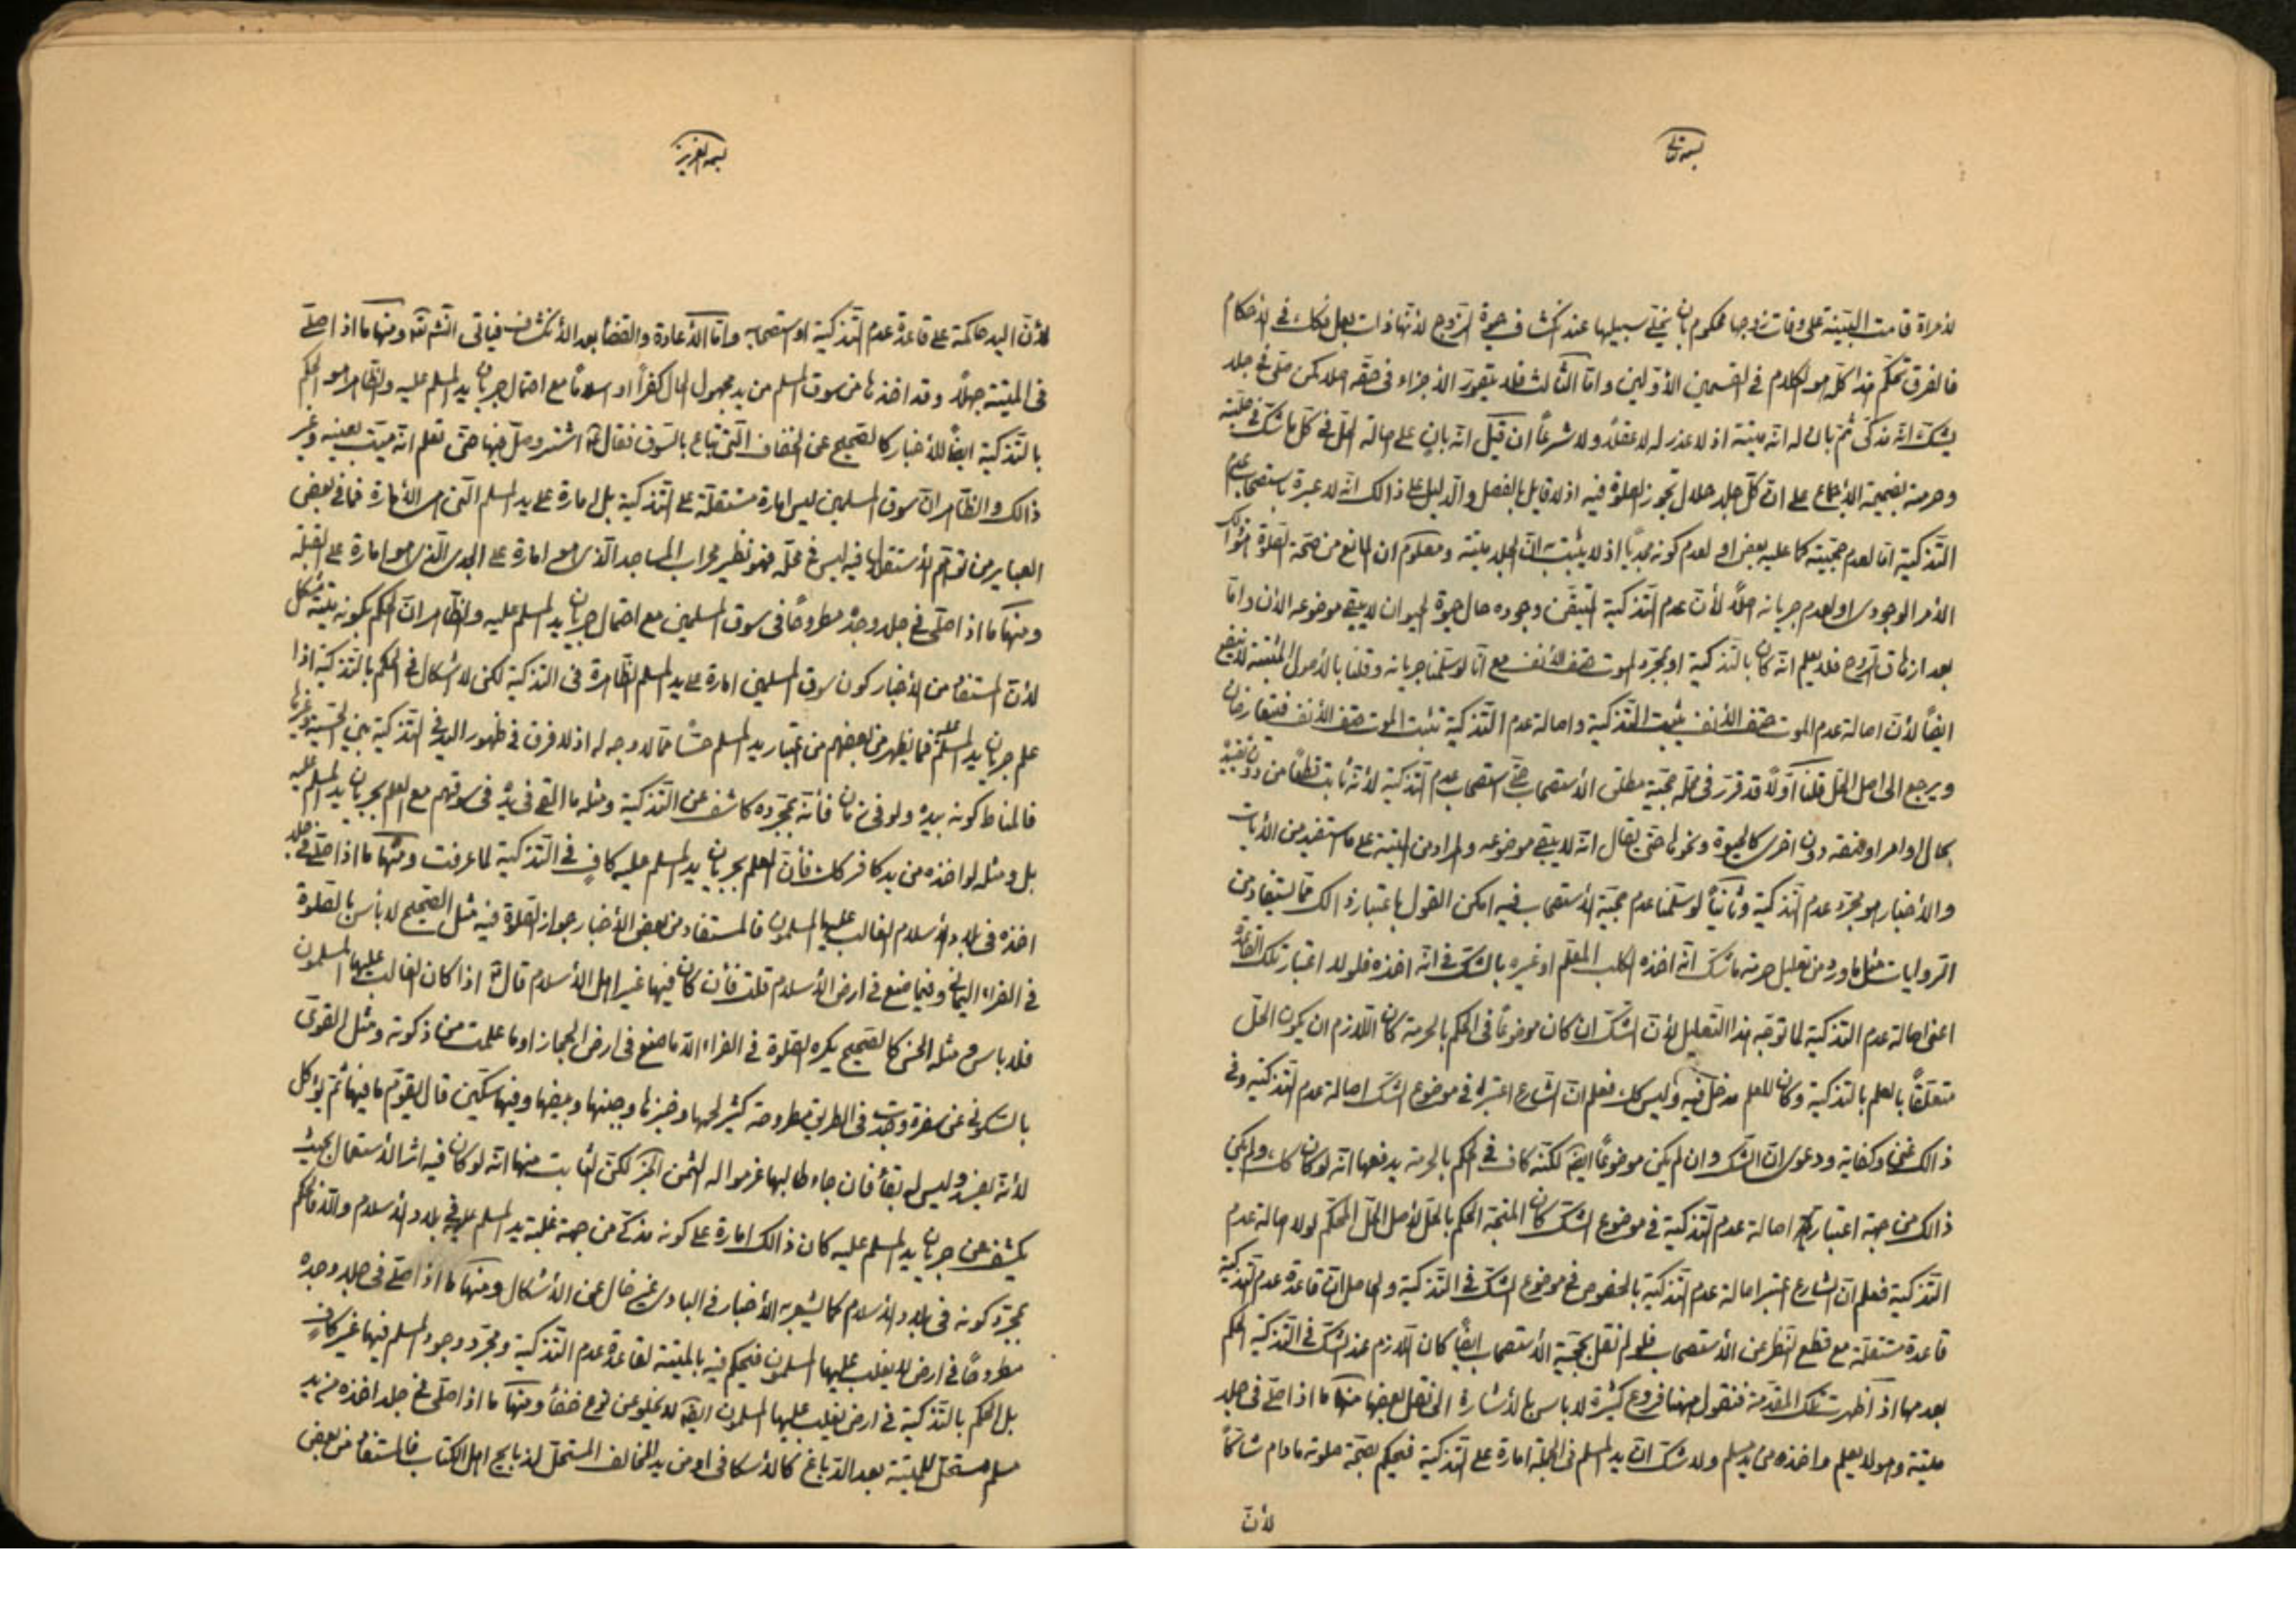 بسمه تعالى
لأمراة قامت البيّنة على وفات زوجها محكوم بان يخلّى سبيلها عند انكشاف حيوة الزوج لأنها ذات بعل فكك فى الاحكام
فالفرق تحكّم هذا كلّه هو الكلام فى القسمين الأوّلين وامّا الثالث فلا يتصوّر الأجزاء فى حقّه اصلا كمن صلّى فى جلد
يشكّ انّه مذكّى ثمّ بان له انّه ميتة اذ لا عذر له لا عقلاً ولا شرعاً ان قيل انّه بانٍ على اصالة الحلّ فى كلّ ما شكّ فى حلّيته
وحرمته بضميمة الأجماع على ان كلّ جلد حلال تجوز الصلوة فيه اذ لا قايل بالفصل والدليل على ذالك انّه لا عبرة باستصحاب عدم
التذكية امّا لعدم حجّيته كما عليه بعض او لعدم كونه مجدياً اذ لا يثبت به انّ الجلد ميتة ومعلوم ان المانع من صحّة الصلوة هو ذالك
الأمر الوجودى او لعدم جريانه اصلاً لأن عدم التذكية المتيقّن وجوده حال حيوة الحيوان لا يبقى موضوعه الأن وامّا
بعد ازهاق الروح فلا يعلم انّه كان بالتذكية او بمجرّد الموت حتف الأنف مع انّا لو سلّمنا جريانه وقلنا بالأصول المثبتة لا ينفع
ايضاً لأنّ اصالة عدم الموت حتف الأنف يثبت التذكية واصالة عدم التذكية تثبت الموت حتف الأنف فيتعارضان
ويرجع الى اصل الحلّ قلنا اوّلاً قد قرّر فى محلّه حجّية مطلق الأستصحاب حتّى استصحاب عدم التذكية لأنّه ثابت قطعاً من دون تقييد
بحال او امر او صفة دون اخرى كالحيوة ونحوها حتى يقال انّه لا يبقى موضوعه والمراد من الميتة على ما استفيد من الأيات
والأخبار هو مجرّد عدم التذكية وثانياً لو سلّمنا عدم حجّية الأستصحاب فيه امكن القول باعتبار ذالك ممّا يستفاد من
الروايات مثل ما ورد من تعليل حرمة ما شكّ انّه اخذه الكلب المعلّم او غيره بالشكّ فى انّه اخذه فلولا اعتبار تلك القاعدة
اعنى اصالة عدم التذكية لما توجّه هذا التعليل لأنّ الشكّ ان كان موضوعاً فى الحكم بالحرمة كان اللازم ان يكون الحلّ
متعلّقاً بالعلم بالتذكية وكان للعلم مدخل فيه وليس كك فعلم انّ الشارع اعتبر فى موضوع الشكّ اصالة عدم التذكية وفى
ذالك غنى وكفاية ودعوى انّ الشكّ وان لم يكن موضوعاً ايضاً لكنّه كاف فى الحكم بالحرمة يدفعها انّه لو كان كك ولم يكن
ذالك من جهة اعتبار اصالة عدم التذكية فى موضوع الشكّ كان المتّجه الحكم بالحلّ لأصل الحلّ المحكّم لولا اصالة عدم
التذكية فعلم انّ الشارع اعتبر اصالة عدم التذكية بالخصوص فى موضوع الشكّ فى التذكية والحاصل انّ قاعدة عدم التذكية
قاعدة مستقلّة مع قطع النظر عن الأستصحاب فلو لم نقل بحجّية الأستصحاب ايضاً كان اللازم عند الشكّ فى التذكية الحكم
بعدمها اذا ظهرت تلك المقدّمة فنقول هيهنا فروع كثيرة لا باس بالأشارة الى نقل بعضها منها ما اذا صلّى فى جلد
ميتة وهو لا يعلم واخذه من يد مسلم ولا شكّ انّ يد المسلم فى الجملة امارة على التذكية فيحكم بصحّة صلوته مادام شاكّاً
لأنّ
بسمه العزيز
لأنّ اليد حاكمة على قاعدة عدم التذكية او استصحابه وامّا الأعادة والقضا بعد الأنكشاف فياتى انشاء الله ومنها ما اذا صلّى
فى الميتة جهلاً وقد اخذها من سوق المسلم من يد مجهول الحال كفراً او اسلاماً مع احتمال جريان يد المسلم عليه والظاهر هو الحكم
بالتذكية ايضاً للأخبار كالصحيح عن الخفاف الّتى تباع بالسوق فقال اشتر وصلّ فيها حتّى تعلم انّه ميّت بعينه وغير
ذالك والظاهر انّ سوق المسلمين ليس امارة مستقلّة على التذكية بل امارة على يد المسلم الّتى هى الأمارة فما فى بعض
العباير من توهّم الأستقلال فيه ليس فى محلّه فهو نظير محراب المساجد الّذى هو امارة على الجدى الّذى هو امارة على القبلة
ومنها ما اذا صلّى فى جلد وجده مطروحاً فى سوق المسلمين مع احتمال جريان يد المسلم عليه والظاهر انّ الحكم بكونه ميتة مشكل
لأنّ المستفاد من الأخبار كون سوق المسلمين امارة على يد المسلم الظاهرة فى التذكية لكن لا اشكال فى الحكم بالتذكية اذا
علم جريان يد المسلم عليه فما يظهر من بعضهم من اعتبار يد المسلم حسّاً ممّا لا وجه له اذ لا فرق فى ظهور اليد فى التذكية بين الحسّية وغيرها
فالمناط كونه بيده ولو فى زمان فأنّه بمجرّده كاشف عن التذكية ومثله ما القى فى يده فى سوقهم مع العلم بجريان يد المسلم عليه
بل ومثله لو اخذه من يد كافر كك فأنّ العلم بجريان يد المسلم عليه كافٍ فى التذكية لما عرفت ومنها ما اذا صلّى فى جلد
اخذه فى بلاد الأسلام الغالب عليها المسلمون فالمستفاد من بعض الأخبار جواز الصلوة فيه مثل الصحيح لا بأس بالصلوة
فى الفراء اليمانى وفيما صنع فى ارض الأسلام قلت فأن كان فيها غير اهل الأسلام قال اذا كان الغالب عليها المسلمون
فلا باس ومثله الحسن كالصحيح يكره الصلوة فى الفراء الّا ما صنع فى ارض الحجاز او ما علمت منه ذكوته ومثل القوىّ
بالسكونى عن سفرة وجدت فى الطريق مطروحة كثير لحمها وخبزها وجبنها وبيضها وفيها سكّين قال يقوّم ما فيها ثمّ يؤكل
لأنّه يفسد وليس له بقأ فان جاء طالبها غرموا له الثمن الخبر لكن الثابت منها انّه لو كان فيه اثر الأستعمال بحيث
يكشف عن جريان يد المسلم عليه كان ذالك امارة على كونه مذكّى من جهة غلبة يد المسلم عليه فى بلاد الأسلام والّا فالحكم
بمجرّد كونه فى بلاد الأسلام كما يشعر به الأخبار فى البادى غير خال عن الأشكال ومنها ما اذا صلّى فى جلد وجده
مطروحاً فى ارض لا يغلب عليها المسلمون فيحكم فيه بالميتة لقاعدة عدم التذكية ومجرّد وجود المسلم فيها غير كافٍ
بل الحكم بالتذكية فى ارض يغلب عليها المسلمون ايضاً لا يخلو عن نوع خفأ ومنها ما اذا صلّى فى جلد اخذه من يد
مسلم مستحلّ للميتة بعد الدباغ كالأسكافى او من يد المخالف المستحلّ لذبايح اهل الكتاب فالمستفاد من بعض